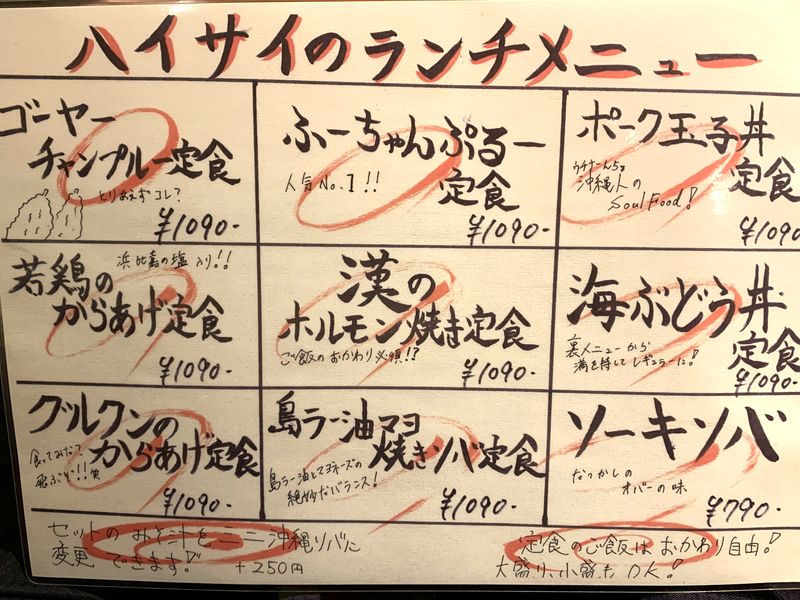 ハイサイのランチメニュー
ゴーヤー
チャンプルー定食
とりあえずコレ?
¥1090-
ふーちゃんぷるー
定食
人気No.1!!
¥1090-
ポーク玉子丼
定食
ウチナーんちゅ
沖縄人の
Soul Food!
¥1090
浜比嘉の塩入り!!
若鶏の
からあげ定食
¥1090-
漢の
ホルモン焼き定食
ご飯のおかわり必須!?
¥1090-
海ぶどう丼
定食
裏メニューから
満を持してレギュラーに!
¥1090-
グルクンの
からあげ定食
食ってみな?
飛ぶぞ!!笑
¥1090-
島ラー油マヨ
焼きソバ定食
島ラー油とマヨネーズの
絶妙なバランス!
¥1090-
ソーキソバ
なつかしの
オバーの味
¥790-
セットのみそ汁をミニ沖縄ソバに
変更できます!
+250円
定食のご飯はおかわり自由!
大盛り、小盛もOK!